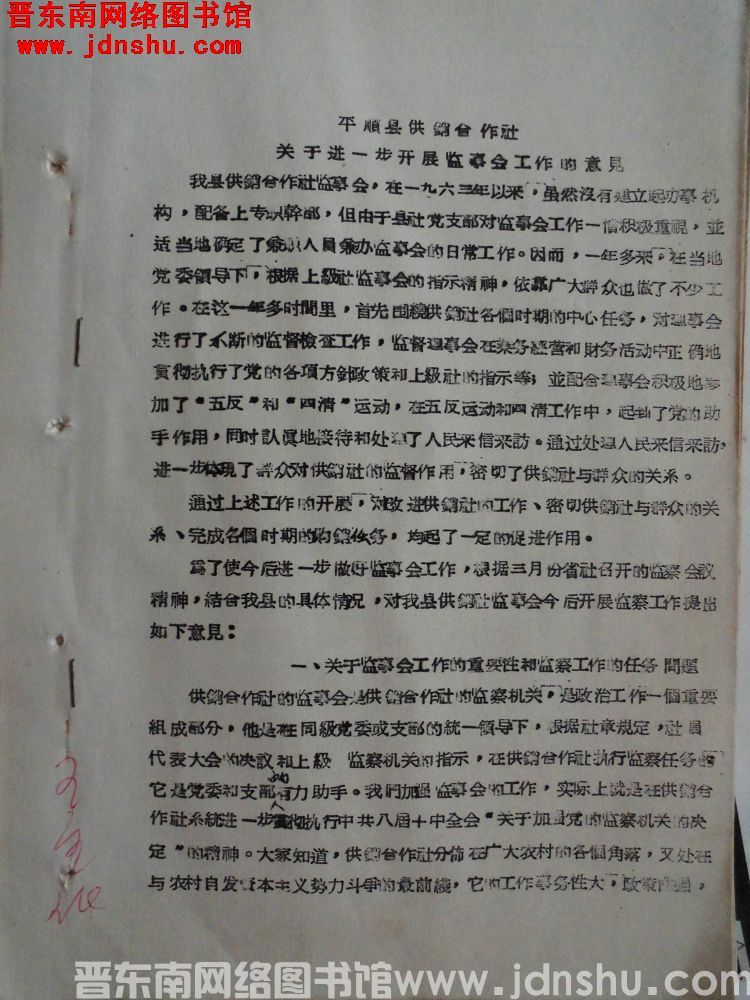 晋东南网络图书馆
www.jdnshu.com
平順县供銷合作社
关于进一步开展监事会工作的意見
我县供銷合作社监事会，在一九六三年以来，虽然沒有建立起办事机
构，配备上专职幹部，但由于县社党支部对监事会工作一惜积极重視，並
适当地确定了兼职人員兼办监事会的日常工作。因而，一年多来，在当地
党委領导下，根据上級社监事会的指示精神，依靠广大群众也做了不少工
作。在这一年多时間里，首先围繞供銷社各個时期的中心任务，对理事会
进行了不断的监督检查工作，监督理事会在業务經营和財务活动中正确地
貫彻执行了党的各項方針政策和上級社的指示等；並配合理事会积极地参
加了“五反”和“四清”运动，在五反运动和四清工作中，起到了党的助
手作用，同时認眞地接待和处理了人民来信来訪。通过处理人民来信来訪，
进一步体現了群众对供銷社的监督作用，密切了供銷社与群众的关系。
通过上述工作的开展，对改进供銷社的工作、密切供銷社与群众的关
系、完成各個时期的购銷任务，均起了一定的促进作用。
爲了使今后进一步做好监事会工作，根据三月份省社召开的监察会議
精神，結合我县的具体情况，对我县供銷社监事会今后开展监察工作提出
如下意見：
一、关于监事会工作的重要性和监察工作的任务問題
供銷合作社的监事会是供銷合作社的监察机关，是政治工作一個重要
組成部分，他是在同級党委或支部的統一領导下，根据社章規定，社員
代表大会的决議和上級 监察机关的指示，在供銷合作社执行监察任务的
它是党委和支部的有力助手。我們加强监事会的工作，实际上就是在供銷合
作社系統进一步貫彻执行中共八届十中全会“关于加强党的监察机关的决
定”的精神。大家知道，供銷合作社分佈在广大农村的各個角落，又处在
与农村自发资本主义势力斗争的最前綫，它的工作事务性大，政策性强，
晋东南网络图书馆www.jdnshu.com